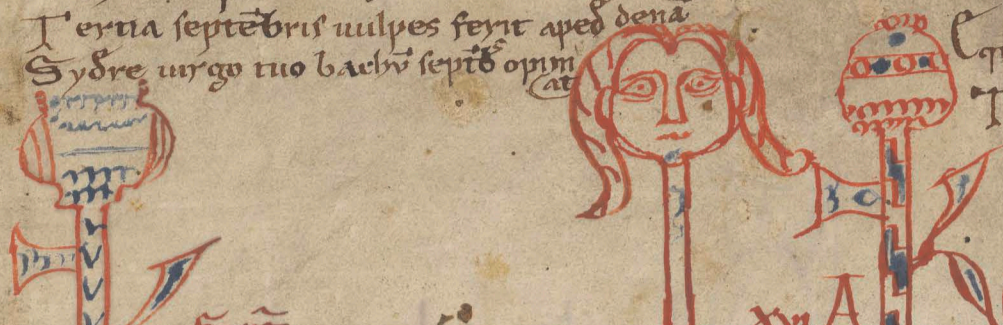 Tertia septēbris uulpes ferit a pede denā
Sydere uirgo tuo bachū septēber opim
at
xvi A